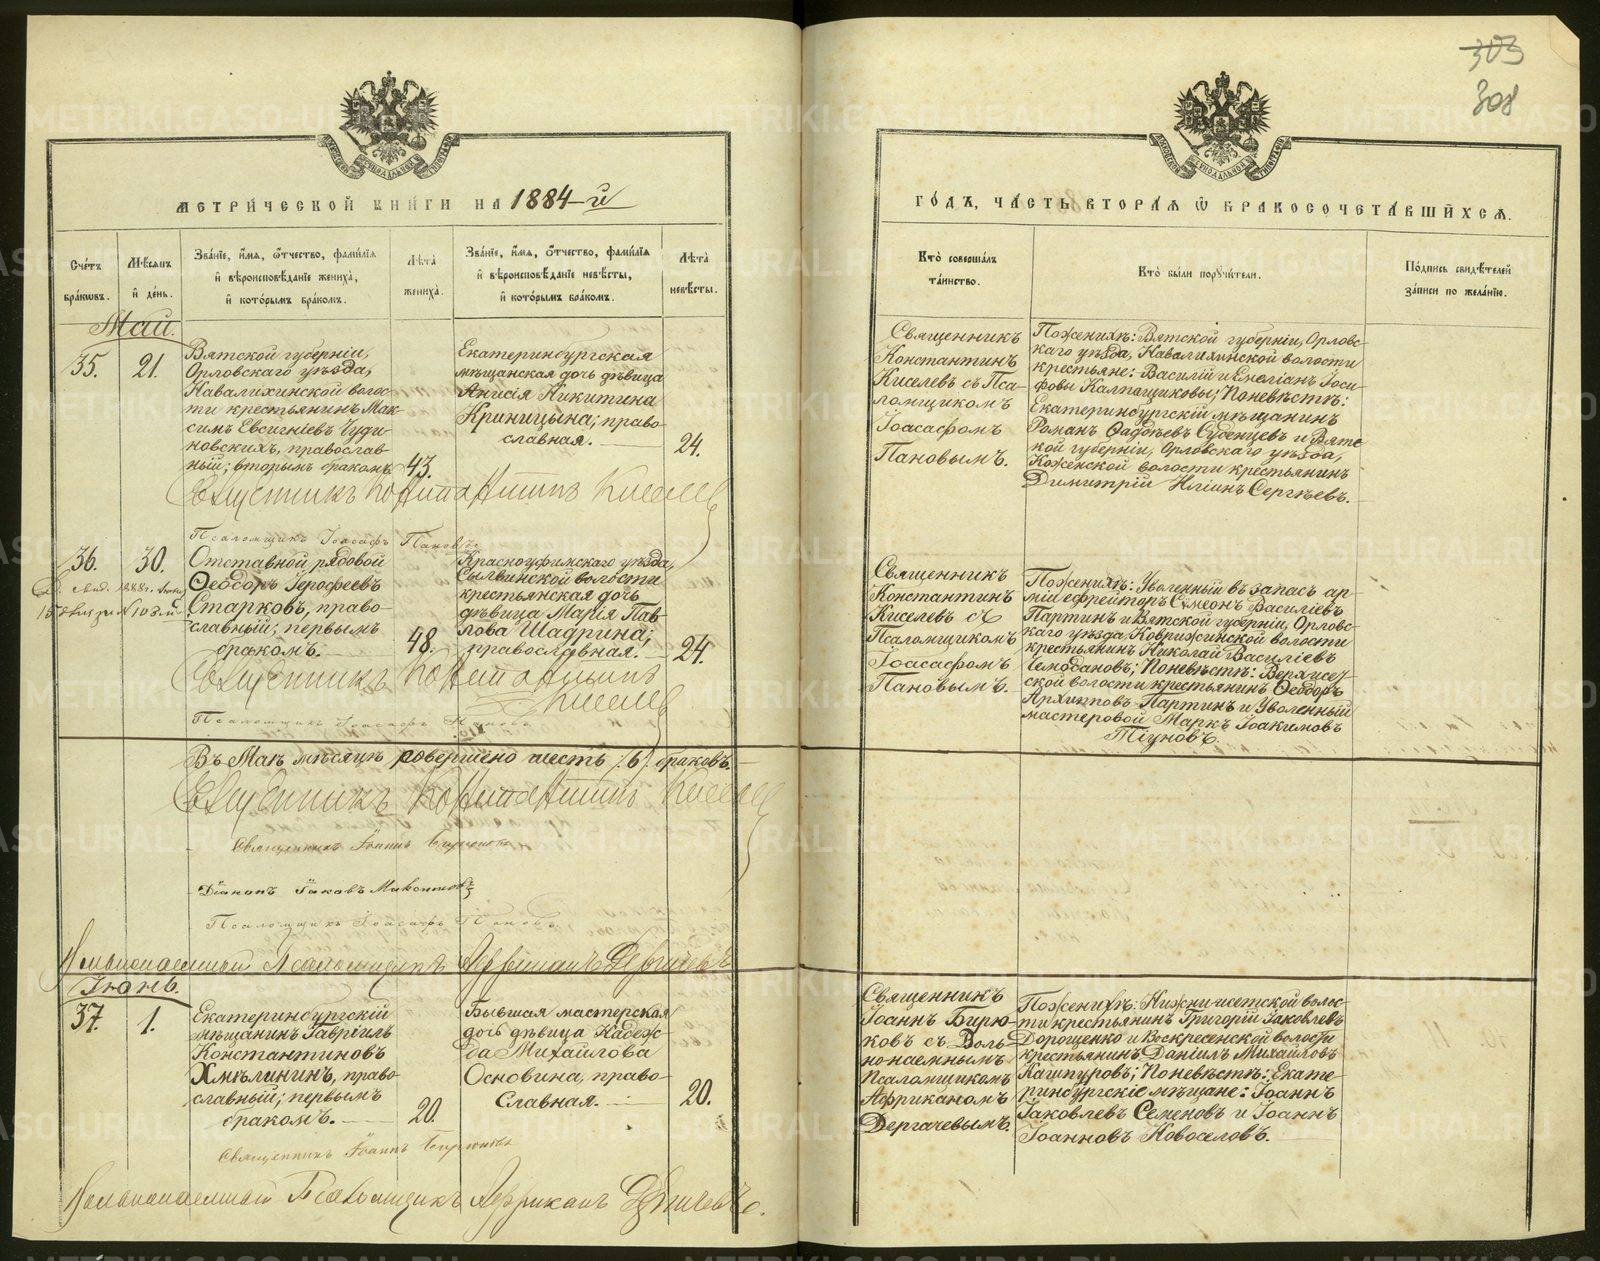 303
308
МЕТРИ́ЧЕСКОЙ КНИ́ГИ НА 1884-й
ГО́ДЪ, ЧАСТЬ ВТОРАЯ Ѡ БРАКОСОЧЕТА́ВШИХСЯ.
Сче́тъ бра́ковъ.
Мѣ́сяцъ и де́нь.
Зва́ніе, и́мя, о́тчество, фами́лія и вѣроисповѣ́даніе жениха́, и кото́рымъ бра́комъ.
Лѣ́та жениха́.
Зва́ніе, и́мя, о́тчество, фами́лія и вѣроисповѣ́даніе невѣ́сты, и кото́рымъ бра́комъ.
Лѣ́та невѣ́сты.
Кто̀ соверша́лъ та́инство.
Кто̀ бы́ли поручи́тели.
По́дпись свидѣ́телей за́писи по жела́нію.
Май.
35.
21.
Вятской губерніи,
Орловскаго уѣзда,
Кавалихинской волос-
ти крестьянинъ Мак-
симъ Евсигніевъ Чуди-
новскихъ, православ-
ный; вторымъ бракомъ
43.
Екатеринбургская
мѣщанская дочь дѣвица
Анисія Никитина
Криницына; право-
славная.
24.
Священникъ
Константинъ
Киселевъ съ Пса-
ломщикомъ
Іоасафомъ
Пановымъ.
По женихѣ: Вятской губерніи, Орловс-
каго уѣзда, Кавалихинской волости
крестьяне: Василій и Емеліанъ Іоси-
фовы Калпащиковы; По невѣстѣ:
Екатеринбургскій мѣщанинъ
Романъ Ѳаддѣевъ Суденцевъ и Вятс-
кой губерніи, Орловскаго уѣзда,
волости крестьянинъ
Димитрій Иліинъ Сергѣевъ.
Священникъ Константинъ Киселев
Псаломщикъ Іоасафъ Пановъ
36.
30.
Отставной рядовой
Ѳеодоръ Іерофеевъ
Старковъ, право-
славный; первымъ
бракомъ.
48.
Красноуфимскаго уѣзда,
Сылвинской волости
крестьянская дочь
дѣвица Марія Пав-
лова Шадрина;
православная.
24.
Священникъ
Константинъ
Киселевъ съ
Псаломщикомъ
Іоасафомъ
Пановымъ.
По женихѣ: Уволенный въ запасъ ар-
міи ефрейторъ Сѵмеонъ Василіевъ
Партинъ и Вятской губерніи, Орловс-
каго уѣзда, Коврижинской волости
крестьянинъ Николай Василіевъ
Чемодановъ; По невѣстѣ: Верхисет-
ской волости крестьянинъ Ѳеодоръ
Архиповъ Партинъ и Уволенный
мастеровой Маркъ Іоакимовъ
Тіуновъ.
Священникъ Константинъ
Киселев
Псаломщикъ Іоасафъ Пановъ
Въ Маѣ мѣсяцѣ совершено шесть /6/ браковъ.
Священникъ Константинъ Киселев
Священникъ Іоаннъ Бирюковъ
Діаконъ Іаковъ Максимовъ
Псаломщикъ Іоасафъ Пановъ
Вольнонаемный Псаломщикъ Африканъ Дергачевъ
Іюнь.
37.
1.
Екатеринбургскій
мѣщанинъ Гавріилъ
Константиновъ
Хмѣлининъ, право-
славный; первымъ
бракомъ.
20.
Бывшая мастерская
дочь дѣвица Надеж-
да Михайлова
Основина, право-
славная.
20.
Священникъ
Іоаннъ Бирю-
ковъ съ Воль-
нонаемнымъ
Псаломщикомъ
Африканомъ
Дергачевымъ.
По женихѣ: Нижни-исетской волос-
ти крестьянинъ Григорій Іаковлевъ
Дорощенко и Воскресенской волости
крестьянинъ Даніилъ Михайловъ
Кашпуровъ; По невѣстѣ: Екате-
ринбургскіе мѣщане: Іоаннъ
Іаковлевъ Семеновъ и Іоаннъ
Іоанновъ Новоселовъ.
Священникъ Іоаннъ Бирюковъ
Вольнонаемный Псаломщикъ Африканъ Дергачевъ.
METRIKI.GASO-URAL.RU